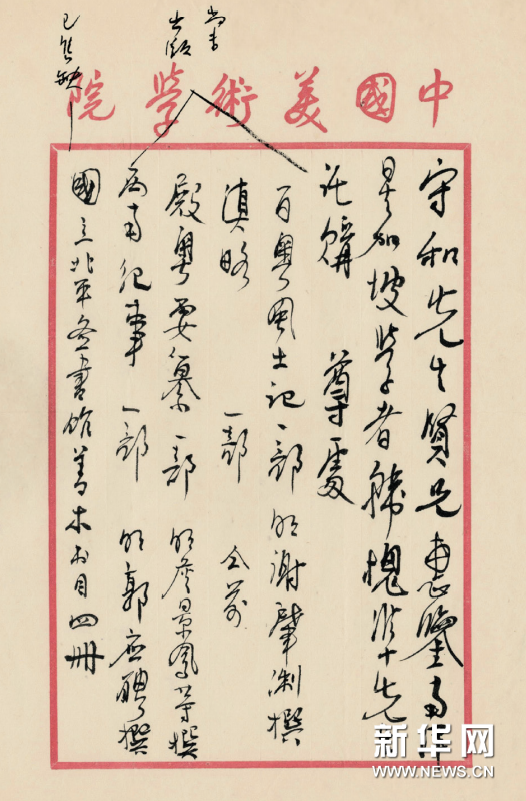 中國美術學院
守和先生賢兄惠鑒南
星加坡學者韓槐準先
託購 尊處
百粵風土記一部 明謝肇淛撰
滇略 一部 仝前
殿粵要纂一部 明詹景鳳等撰
西南紀事 一部 明郭应聘撰
國立北平圖書館善本書目四冊
尚未
出版
已 缺
新华网
WWW.NEWS.CN